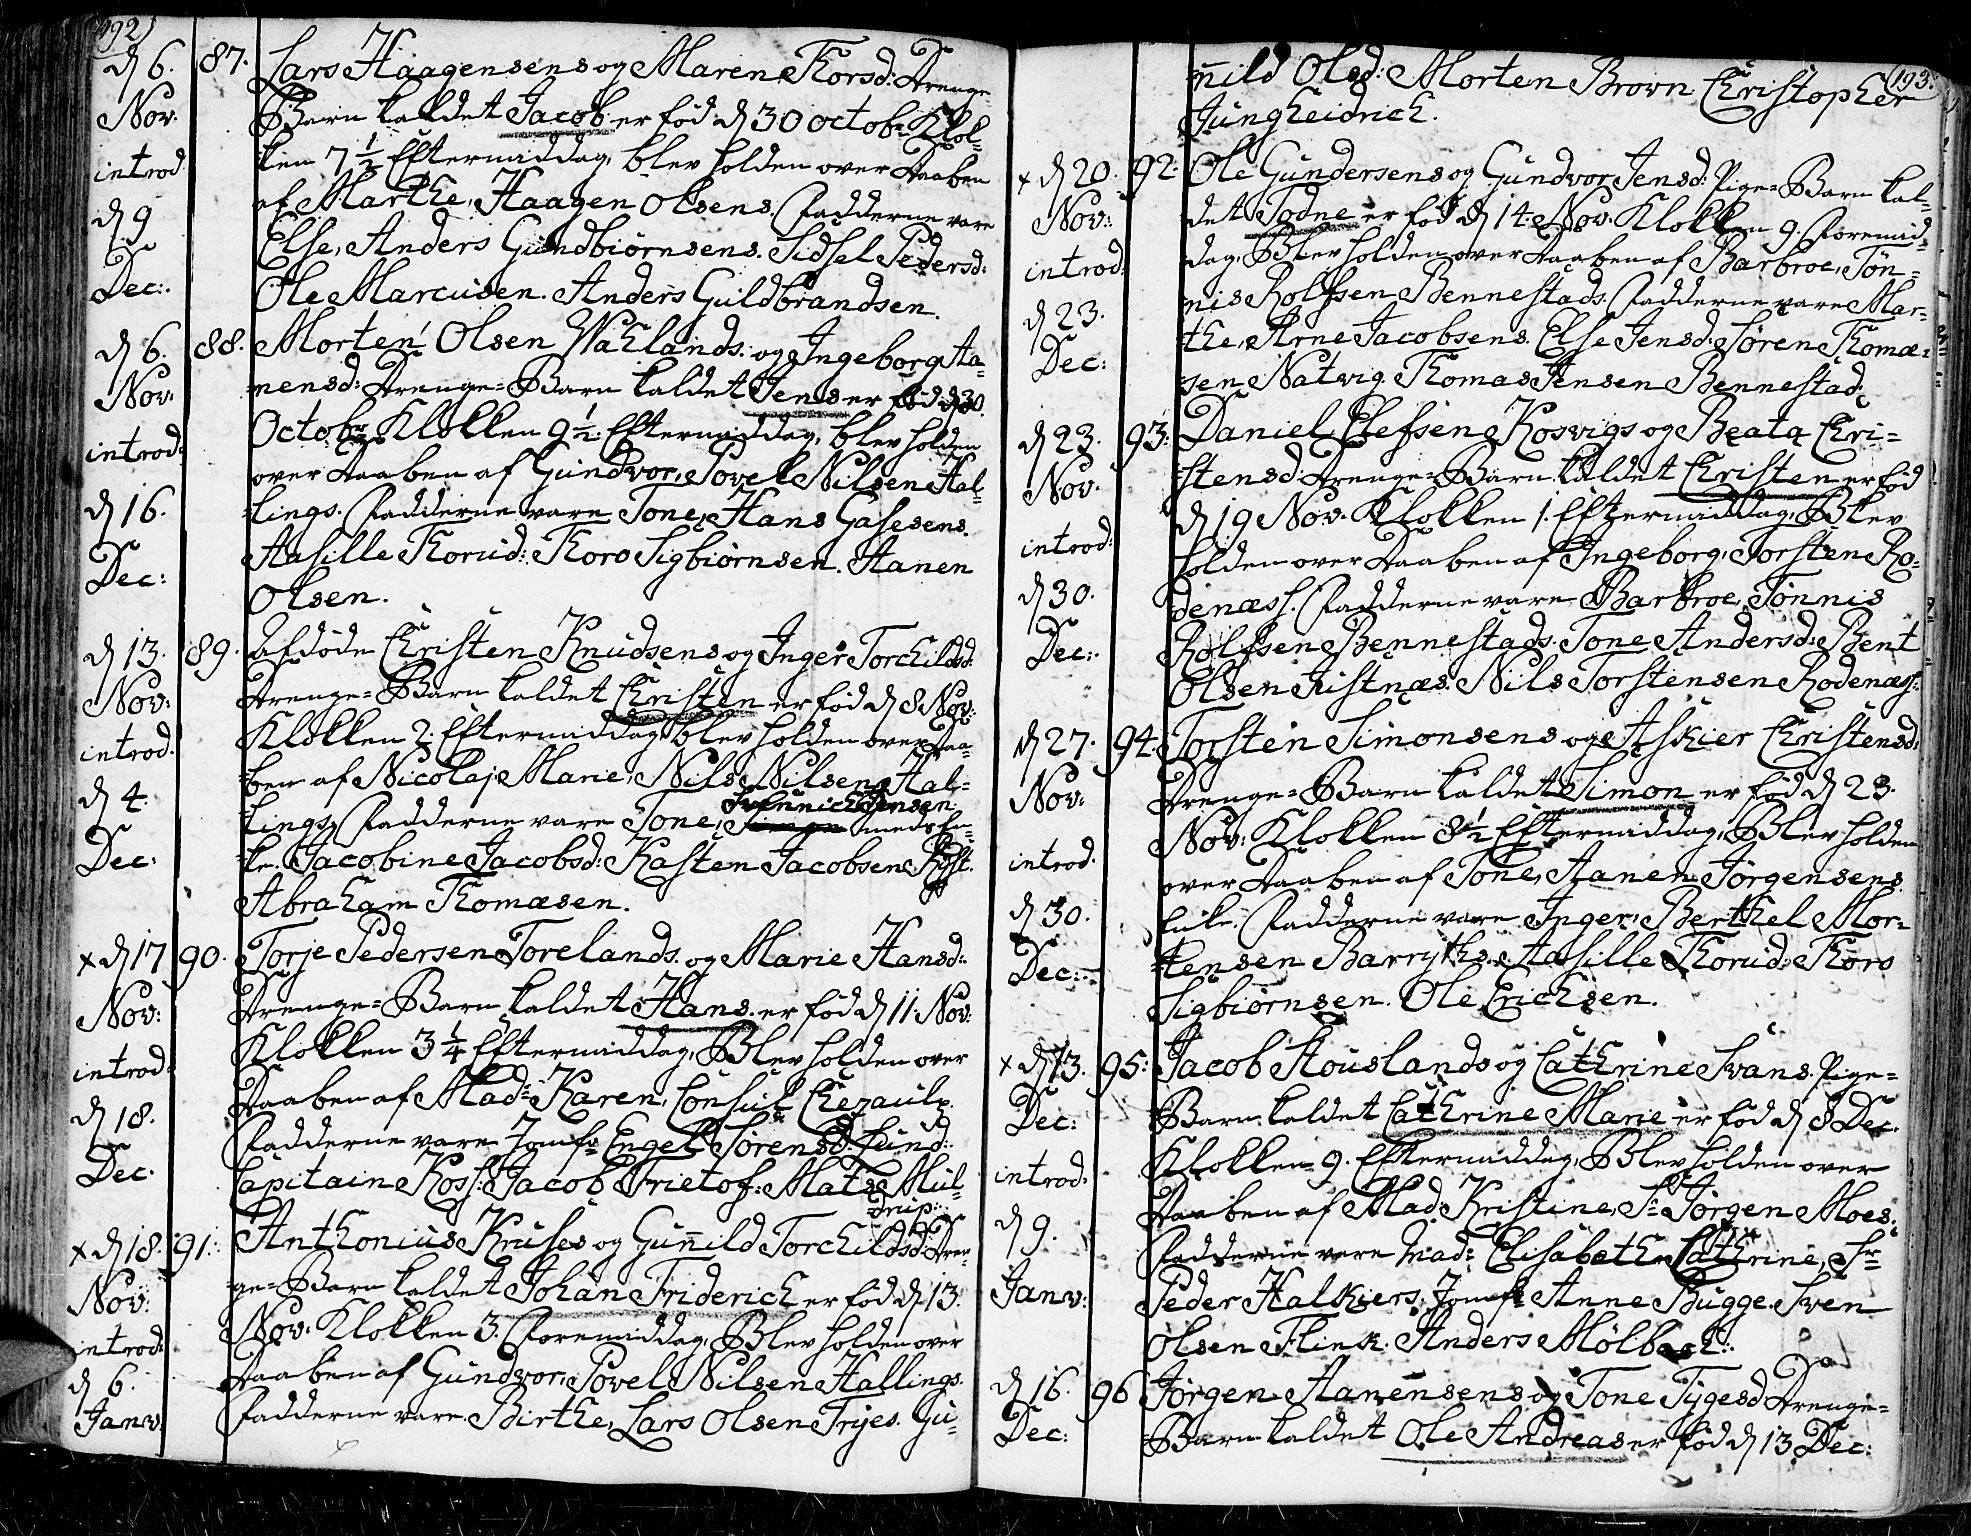 192)
d 6. Nov: introd. d 9 Dec:
87. Lars Haagensens og Maren Thorsd: Drenge-
Barn kaldet Jacob er fød d 30 octobr Klok-
ken 7 1/2 Eftermiddag, blev holden over Daaben
af Marthe, Haagen Olsens. Fadderne vare
Else, Anders Gundbiørnsens. Sidsel Pedersd:
Ole Marcusen. Anders Guldbrandsen.
d 6. Nov: introd: d 16. Dec:
88. Morten Olsen Wahlands. og Ingeborg Aa-
nensd: Drenge-Barn kaldet Jens er fød d 30.
Octobr Klokken 9 1/2 Eftermiddag, blev holden
over Daaben af Gundvor, Povel Nilsen Hal-
lings. Fadderne vare Tone, Hans Gasesens.
Aasille Thorud: Thoro Sigbiørnsen. Aanen
Olsen.
d 13. Nov: introd. d 4. Dec:
89. Afdøde Christen Knudsens og Inger Torchildsd:
Drenge-Barn kaldet Christen er fød d 8 Nov:
Klokken 2. Eftermiddag, blev holden over Daa-
ben af Nicolaj Marie, Nils Nilsen Hal-
lings. Fadderne vare Tone, Svennich Jensen
ke. Jacobine Jacobsd: Karsten Jacobsen
Abraham Thomæsen.
x d 17 Nov: introd: d 18. Dec.
90. Torje Pedersen Torelands. og Marie Hansd:
Drenge-Barn kaldet Hans. er fød d 11. Nov:
Klokken 3 1/4 Eftermiddag, Blev holden over
Daaben af Mad: Karen, Consul Chezaulx.
Fadderne vare Jomfr Engel Sørensd: Lund:
Capitain Kos: Jacob Frietof: Mats Mul-
drup:
x d 18. Nov: introd: d 6. Janv:
91. Anthonius Kruses og Gunnild Torchildsd: Dren-
ge-Barn kaldet Johan Friderich er fød d 13.
Nov. Klokken 3. Foremiddag, Blev holden over
Daaben af Gundvor, Povel Nilsen Hallings.
Fadderne vare. Birthe, Lars Olsen Tryes. Gu-
193.
nild Olsd: Morten Brovn Christopher
Jungheidrich.
x d 20. Nov: introd: d 23. Dec:
92. Ole Gundersens og Gundvor Jensd: Pige-Barn kal-
det Todne er fød d 14 Nov. Klokken 9. Foremid-
dag, Blev holden over Daaben af Barbroe, Tøn-
nis Rolfsen Bennestads. Fadderne vare Mar-
the, Arne Jacobsens. Else Jensd: Søren Thomæ-
sen Natvig. Thomas Jensen Bennestad.
d 23. Nov. introd: d 30. Dec:
93. Daniel Elefsen Kosvigs og Beata Chri-
stensd: Drenge-Barn kaldet Christen er fød
d 19 Nov. Klokken 1. Eftermiddag, Blev
holden over Daaben af Ingeborg, Torsten Ro-
denæs. Fadderne vare Barbroe, Tønnis
Rolfsen Bennestads. Tone Andersd: Bent
Olsen Kistnæs. Nils Torstensen Rodenæs:
d 27. Nov: introd. d 30. Dec:
94. Torsten Simonsens og Askier Christensd:
Drenge-Barn kaldet Simon er fød d 23.
Nov: Klokken 8 1/2 Eftermiddag, Blev holden
over Daaben af Tone, Aanen Jørgensens
Enke. Fadderne vare Inger, Berthel Mor-
tensen Barryths. Aasille Thorud: Thoro
Sigbiørnsen. Ole Erichsen.
x d 13. Dec: introd. d 9. Janv:
95: Jacob Stouslands og Cathrine Svans. Pige-
Barn kaldet Cathrine Marie er fød d 8 Dec.
Klokken 9. Eftermiddag, Blev holden over
Daaben af Mad: Kristine, Sr Jørgen Moes.
Fadderne vare Mad: Elisabeth Cathrine, Sr
Peder Halkiers. Jomfr Anne Bugge. Sven
Olsen Flink. Anders Mølbach:
d 16. Dec:
96 Jørgen Aanensens og Tone Tygesd: Drenge-
Barn kaldet Ole Andreas er fød d 13 Dec: